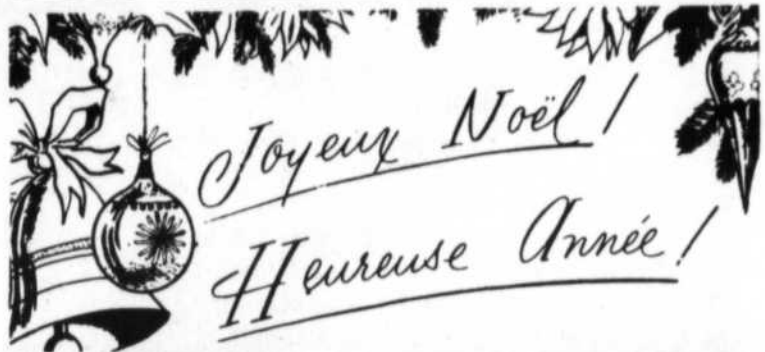 Joyeux Noël !
Heureuse Année !